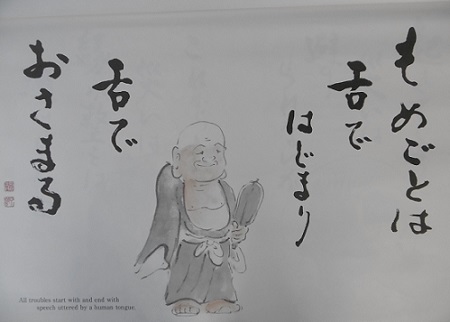 もめごとは
舌で
はじまり
舌で
おさまる
All troubles start with and end with
speech uttered by a human tongue.